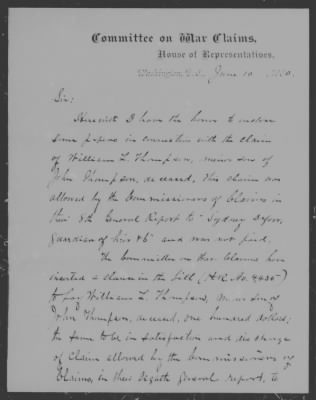 Committee on War Claims,
House of Representatives,
Washington, D.C., June 10
Sir:
Herewith I have the honor to enclose
some papers in connection with the claim
of William L. Thompson, minor son of
John Thompson, deceased. This claim was
allowed by the Commissioners of Claims in
their 8th General Report to "Sydney
guardian of and was not paid.
The Committee on War Claims have
inserted a clause in the bill (H.R. No. 4435)
to pay William L. Thompson, minor son of
John Thompson, deceased, one hundred dollars;
the same to be in satisfaction and discharge
of claim allowed by the Commissioners of
Claims, in their eighth general report, to